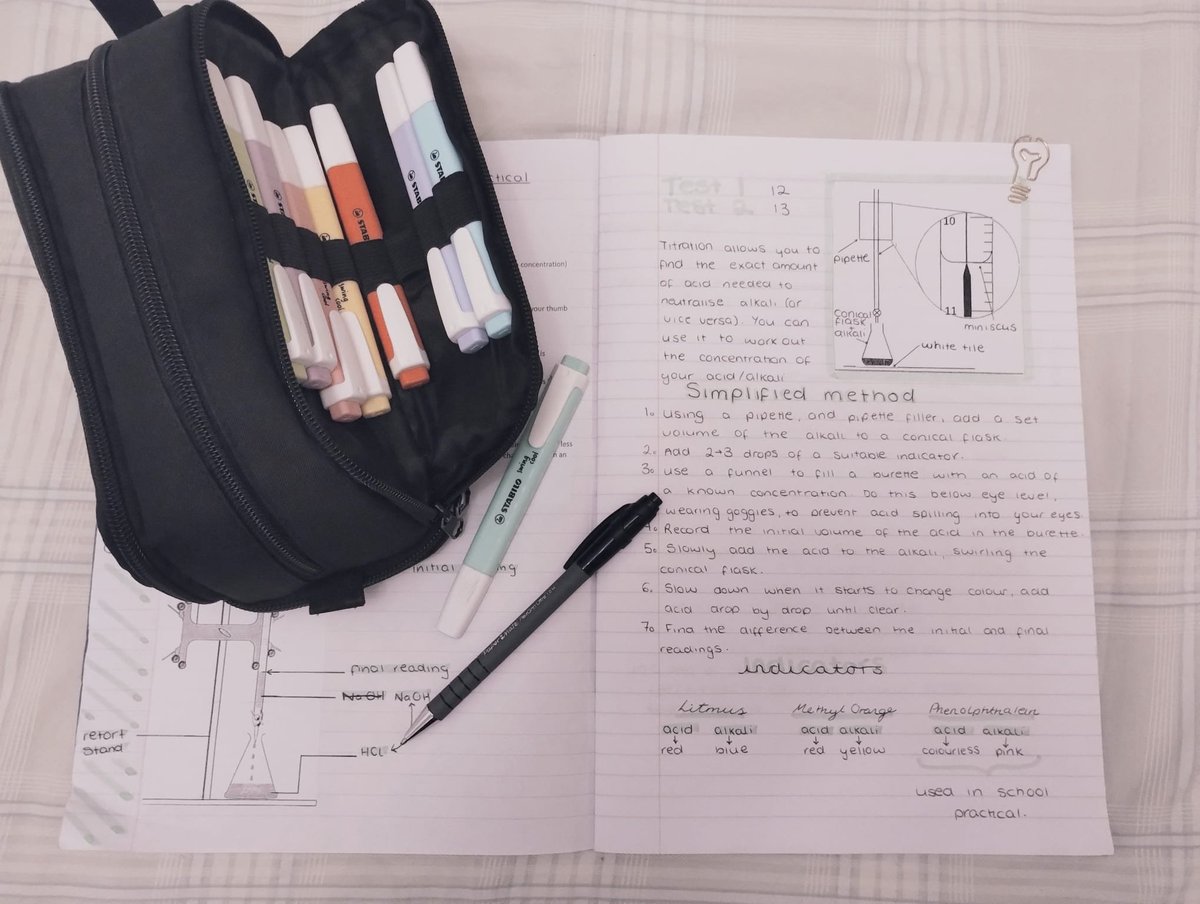 ctical
concentration)
your thumb
is
less
an
initial
final reading
NaOH NaOH
HCl
retort
stand
STABILO swing cool
STABILO
STABILO
swing cool
Test 1 12
Test 2 13
Titration allows you to
find the exact amount
of acid needed to
neutralise alkali (or
vice versa). You can
use it to work out
the concentration of
your acid/alkali
10
11
pipette
conical
flask
alkali
miniscus
white tile
Simplified method
1. Using a pipette, and pipette filler, add a set
volume of the alkali to a conical flask.
2. Add 2→3 drops of a suitable indicator.
3. use a funnel to fill a burette with an acid of
a known concentration. Do this below eye level,
wearing goggles, to prevent acid spilling into your eyes.
4. Record the initial volume of the acid in the burette.
5. Slowly add the acid to the alkali, swirling the
conical flask.
6. Slow down when it starts to change colour, add
acid drop by drop until clear.
7. Find the difference between the initial and final
readings.
indicators
Litmus Methyl Orange Phenolphthalein
acid alkali acid alkali acid alkali
red blue red yellow colourless pink
used in school
practical.